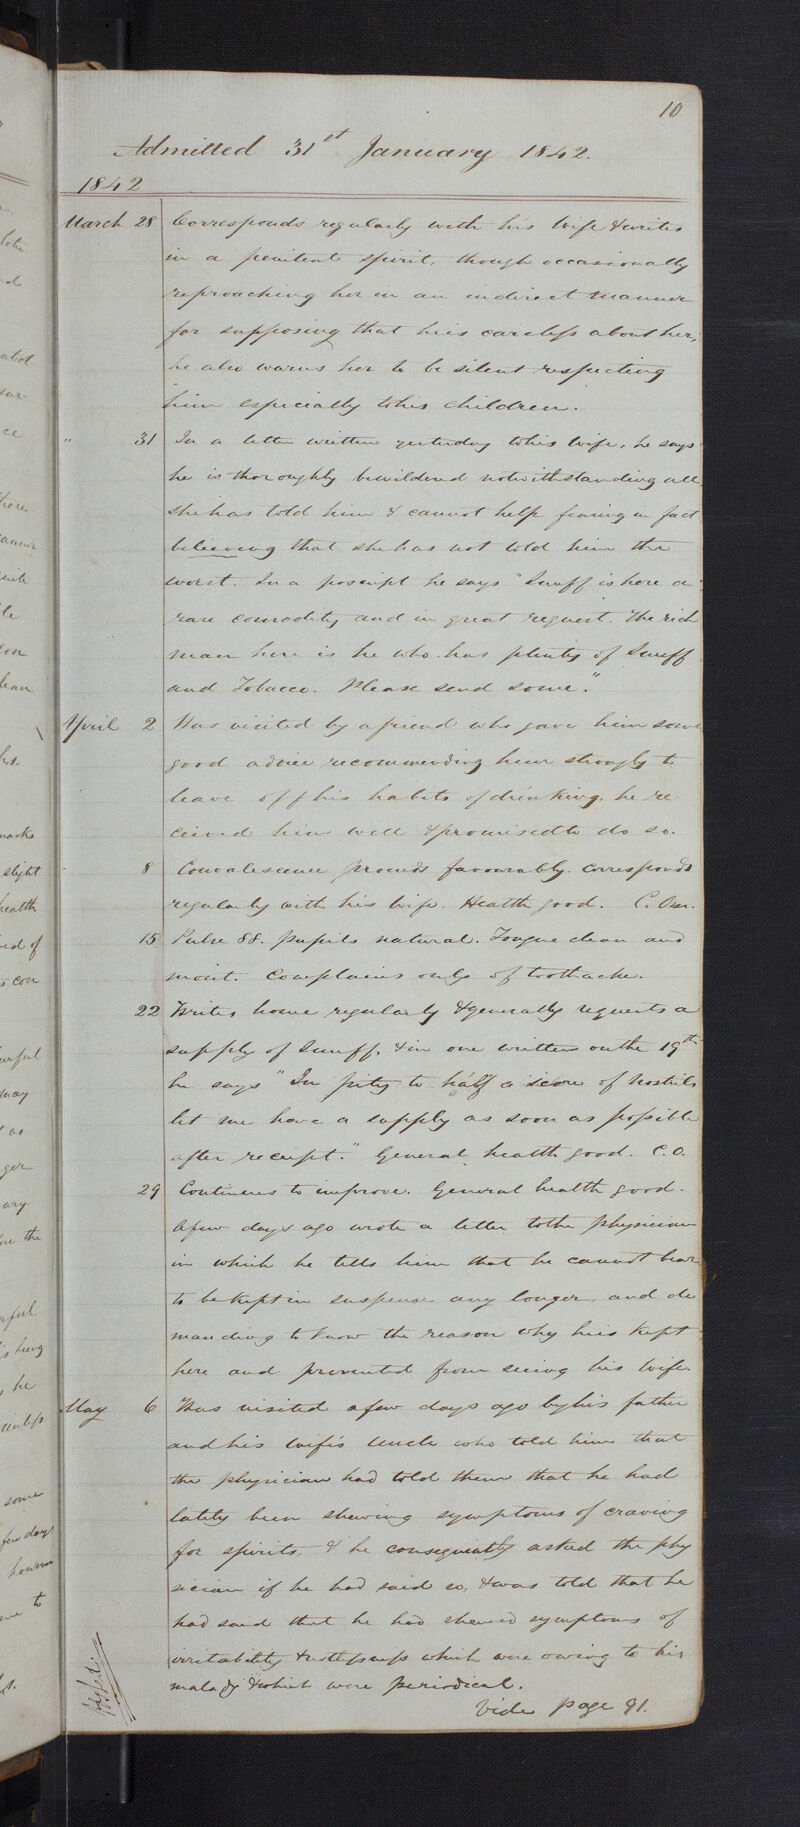 10
Admitted 31st January 1842.
1842
March 28 Corresponds regularly with his Wife & writes
in a penitent spirit, though occasionally
reproaching her in an indirect manner
for supposing that he is careless about her;
he also warns her to be silent respecting
him especially to his children.
" 31 In a letter written yesterday to his Wife, he says
he is thoroughly bewildered notwithstanding all
she has told him & cannot help fearing in fact
believing that she has not told him the
worst. In a poscript he says "Snuff is here a
rare comodity and in great request. The rich
man here is he who has plenty of Snuff
and Tobacco. Please send some."
April 2 Was visited by a friend who gave him some
good advice recommending him strongly to
leave off his habits of drinking, he re
ceived him well & promised to do so.
8 Convalescence proceeds favourably. corresponds
regularly with his Wife. Health good. C. Om.
15 Pulse 88. pupils natural. Tongue clean and
moist. Complains only of toothache.
22 Writes home regularly & generally requests a
supply of Snuff, & in one written on the 19th
he says "In pity to half a score of Nostrils
let me have a supply as soon as possible
after receipt." General health good. C.O.
29 Continues to improve. General health good.
A few days ago wrote a letter to the physician
in which he tells him that he cannot bear
to be kept in suspense any longer, and de
manding to know the reason why he is kept
here and prevented from seeing his Wife.
May 6 Was visited a few days ago by his father
and his Wife's Uncle who told him that
the physician had told them that he had
lately been shewing symptoms of craving
for spirits, & he consequently asked the phy
sician if he had said so, & was told that he
had said that he had shewed symptoms of
irritability & restlessness which were owing to his
malady & which were periodical.
Vide page 91.